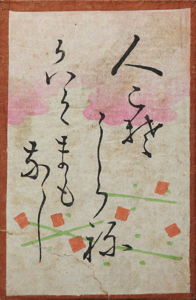 人こそ
しらね
かはくまも
なし